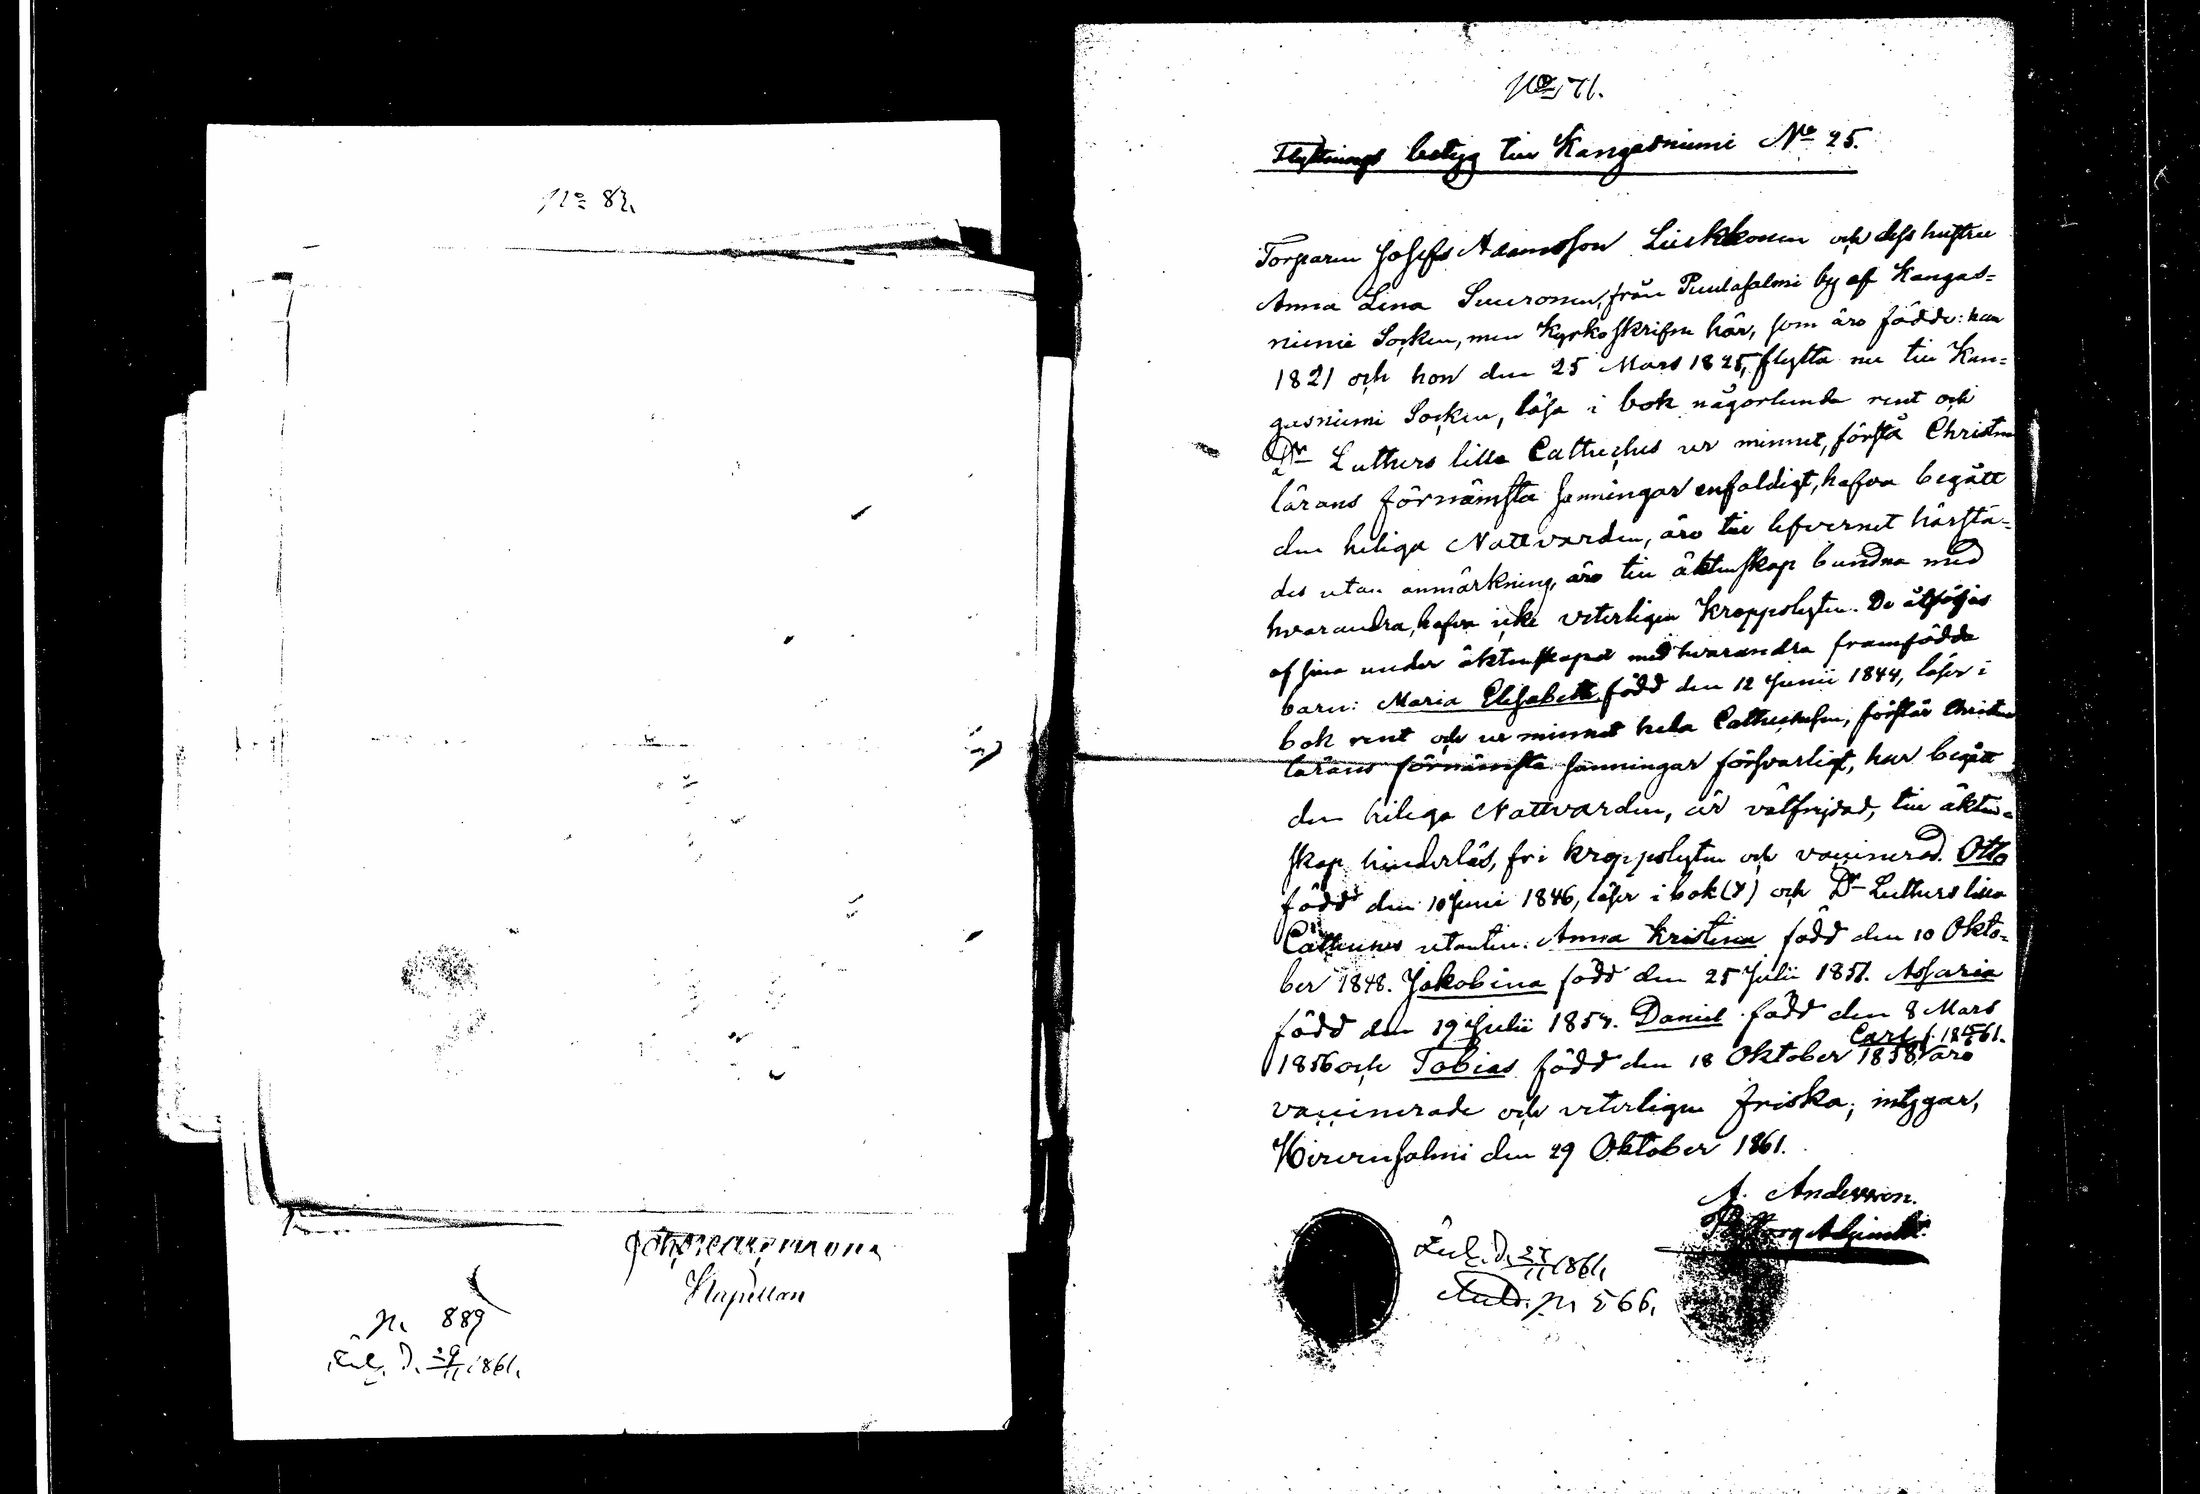 No 82.
Kapellan
N. 889
Inl. D. 29/11 1861.
No 71.
Flyttnings betyg till Kangasniemi No 25.
Torparen Josef Adamsson Liukkonen och dess hustru
Anna Lena Suuronen, från Puulasalmi by af Kangas=
niemi Socken, men Kyrkoskrifne här, som äro födde: han
1821 och hon den 25 Mars 1825, flytta nu till Kan=
gasniemi Socken, läsa i bok någorlunda rent och
Dr Luthers lilla Catheches ur minnet, förstå Christen
lärans förnämsta sanningar enfaldigt, hafva begått
den heliga Nattvarden, äro till lefvernet härstä=
des utan anmärkning, äro till äktenskap bundna med
hvarandra, hafva icke veterligen kroppslyten. De åtföljas
af sina under äktenskapet med hvarandra framfödda
barn: Maria Elisabeth född den 12 Junii 1844, läser i
bok rent och ur minnet hela Cathechesen, förstår Christen
lärans förnämsta sanningar försvarligt, har begått
den heliga Nattvarden, är välfrejdad, till äkten=
skap hinderlös, fri kroppslyten och vaccinerad. Otto
född den 10 Junii 1846, läser i bok (x) och Dr Luthers lilla
Catheches utantill. Anna Kristina född den 10 Okto=
ber 1848. Jakobina född den 25 Julii 1851. Assaria
född den 19 Julii 1854. Daniel född den 8 Mars
Carl f. 1861.
1856 och Tobias född den 18 Oktober 1858, äro
vaccinerade och veterligen friska; intygar,
Hirvensalmi den 29 Oktober 1861.
A. Andersson.
Pastors Adjunkt.
Inl. D. 1861.
N 566.